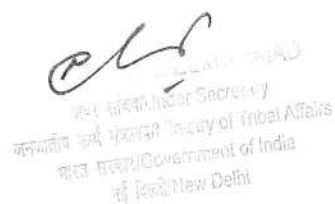 अवर सचिव/Under Secretary
जनजातीय कार्य मंत्रालय/Ministry of Tribal Affairs
भारत सरकार/Government of India
नई दिल्ली/New Delhi